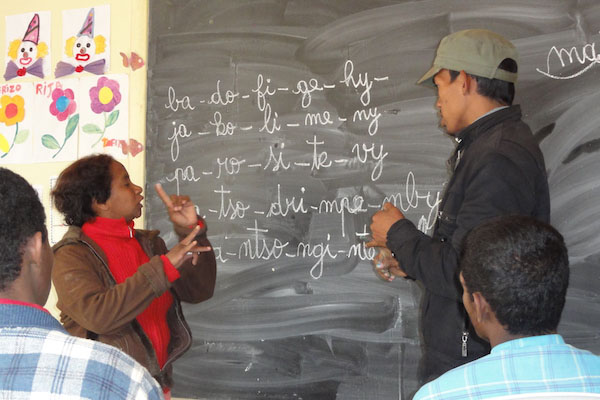 ba-do-fi-ge-hy-
ja-ko-li-me-ny
pa-ro-si-te-vy
tso-dri-mpe-mby
ntso-ngi-nte
ma
RIZO
RIJ